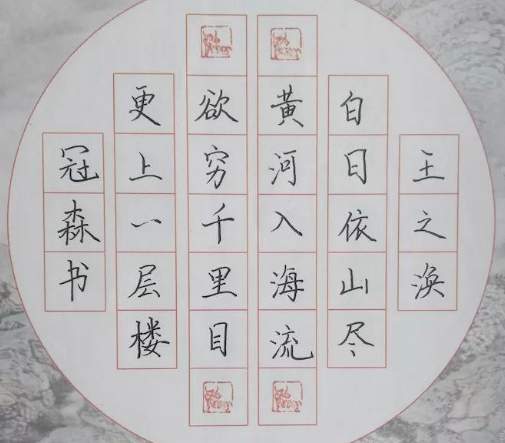 王之涣
白日依山尽
黄河入海流
欲穷千里目
更上一层楼
冠森书